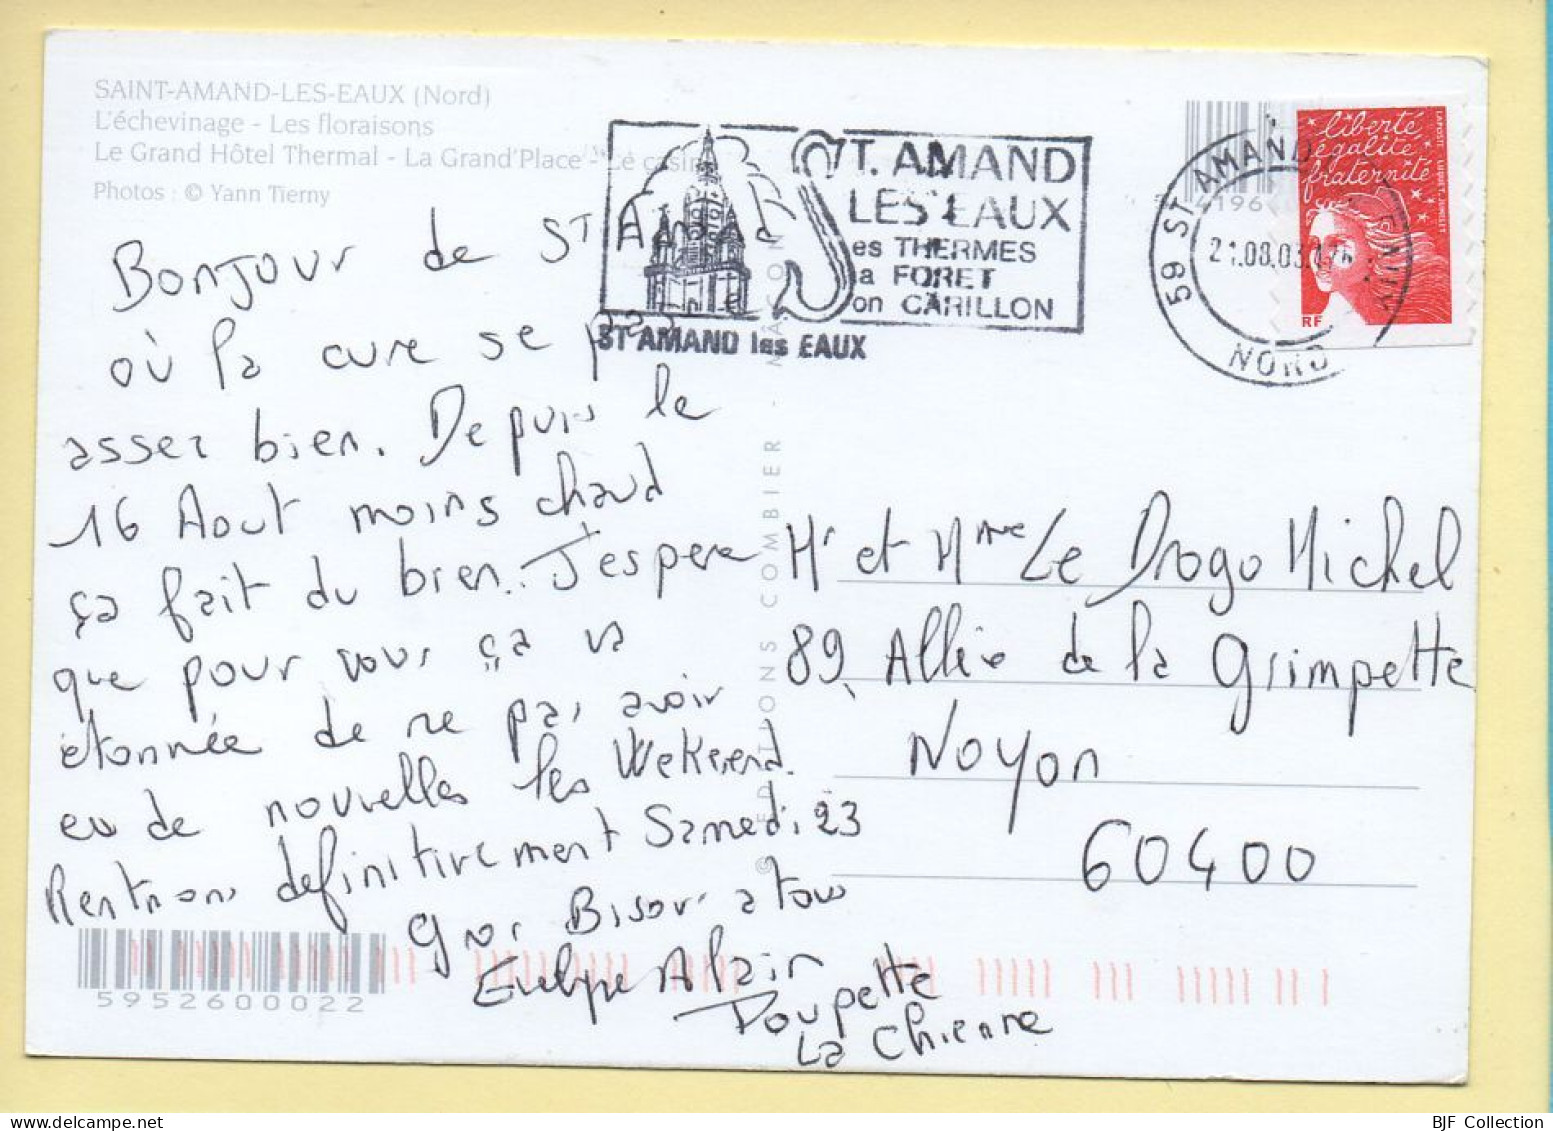 SAINT-AMAND-LES-EAUX (Nord)
L'échevinage - Les floraisons
Le Grand Hôtel Thermal - La Grand'Place - Le casino
Photos : © Yann Tierny
ST. AMAND
LES EAUX
Ses THERMES
Sa FORET
Son CARILLON
ST AMAND les EAUX
59 ST AMAND
21.08.03
NORD
liberté
égalité
fraternité
RF
LA POSTE
4196
Bonjour de St Amand
où la cure se passe
assez bien. Depuis le
16 Aout moins chaud
ça fait du bien. J'espère
que pour vous ça va
étonnée de ne pas avoir
eu de nouvelles les Wekeend.
Rentrons définitivement Samedi 23
Gros Bisous a tous
Evelyne Alain
Poupette
La Chienne
Mr et Mme Le Drogo Michel
89, Allée de la Grimpette
Noyon
60400
© EDITIONS COMBIER - MÂCON
5952600022
BJF Collection